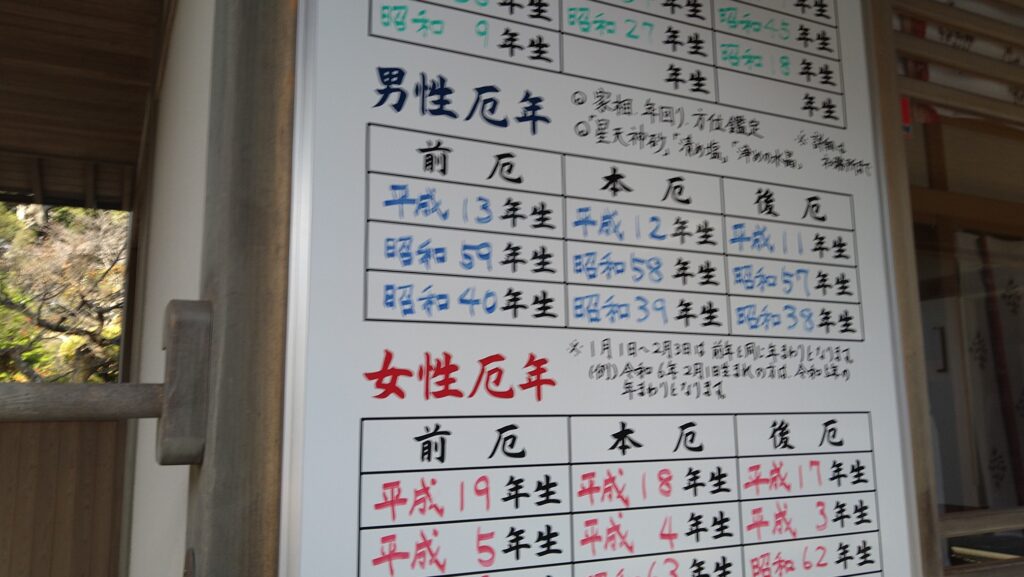 年生 年生 昭和45年生
昭和9年生 昭和27年生 昭和18年生
年生 年生
男性厄年
◎家相、年回り、方位、鑑定
◎「星天神砂」「清め塩」「浄めの水晶」
※詳細は
社務所まで
前厄 本厄 後厄
平成13年生 平成12年生 平成11年生
昭和59年生 昭和58年生 昭和57年生
昭和40年生 昭和39年生 昭和38年生
女性厄年
※1月1日~2月3日は前年と同じ年まわりとなります。
(例)令和6年2月1日生まれの方は、令和5年の
年まわりとなります。
前厄 本厄 後厄
平成19年生 平成18年生 平成17年生
平成5年生 平成4年生 平成3年生
昭和63年生 昭和62年生